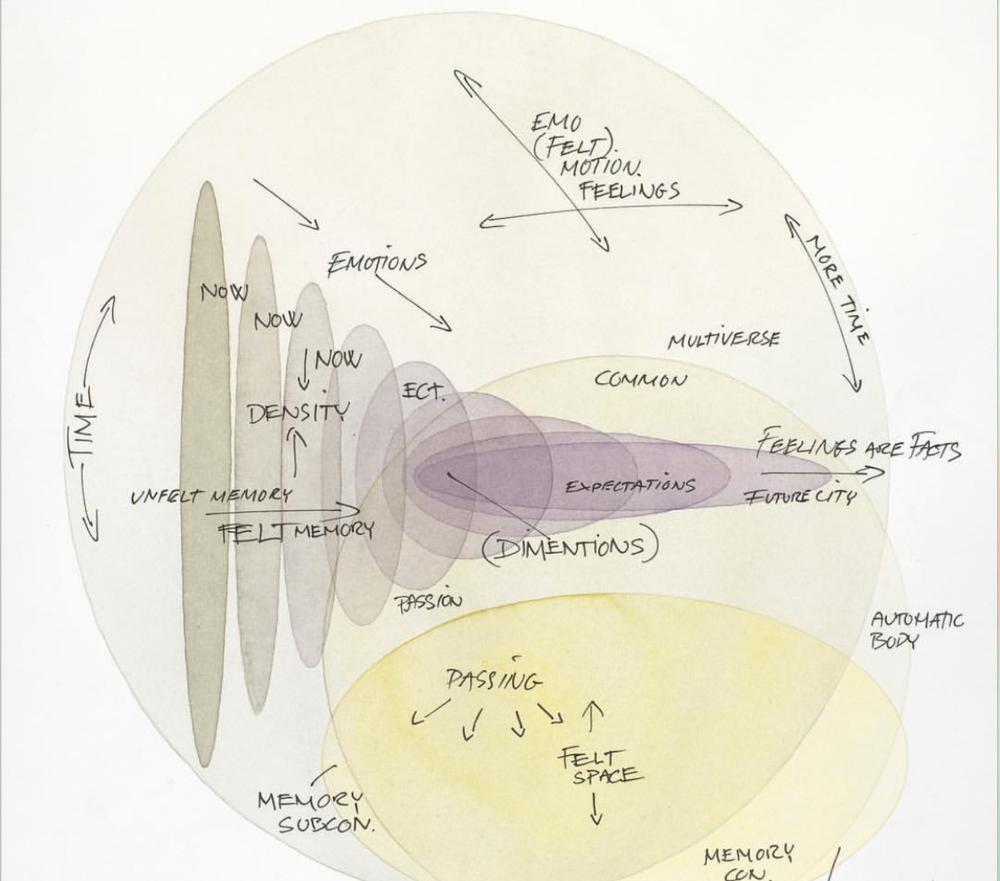 EMO
(FELT).
MOTION.
FEELINGS
EMOTIONS
MORE TIME
NOW
NOW
NOW
MULTIVERSE
COMMON
ECT.
DENSITY
TIME
FEELINGS ARE FACTS
EXPECTATIONS
FUTURE CITY
UNFELT MEMORY
FELT MEMORY
(DIMENTIONS)
PASSION
AUTOMATIC
BODY
PASSING
FELT
SPACE
MEMORY
SUBCON.
MEMORY
CON.